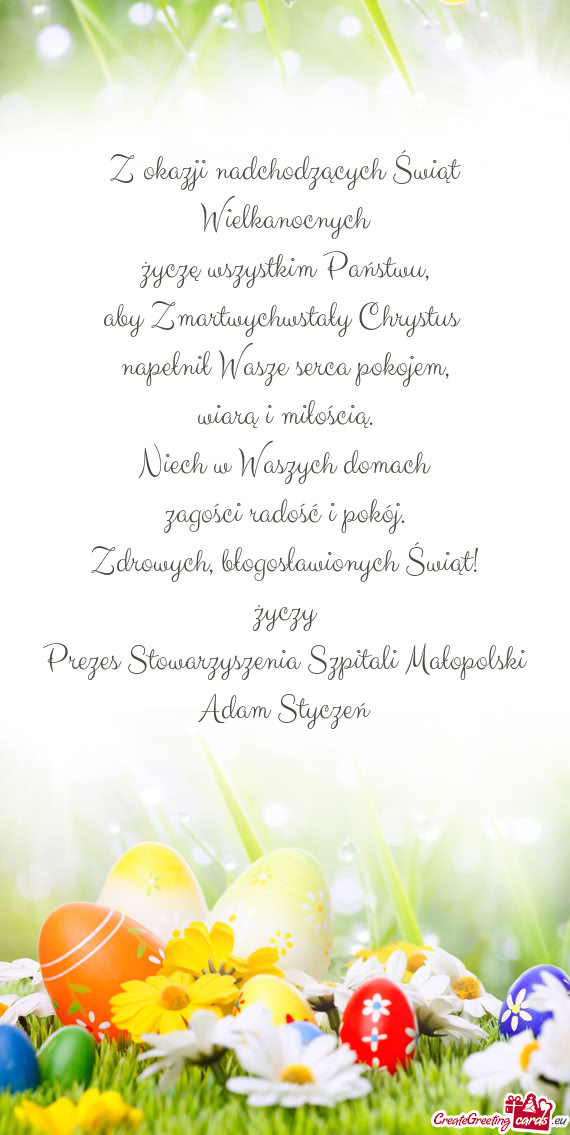 Z okazji nadchodzących Świąt
Wielkanocnych
życzę wszystkim Państwu,
aby Zmartwychwstały Chrystus
napełnił Wasze serca pokojem,
wiarą i miłością.
Niech w Waszych domach
zagości radość i pokój.
Zdrowych, błogosławionych Świąt!
życzy
Prezes Stowarzyszenia Szpitali Małopolski
Adam Styczeń
CreateGreetingcards.eu